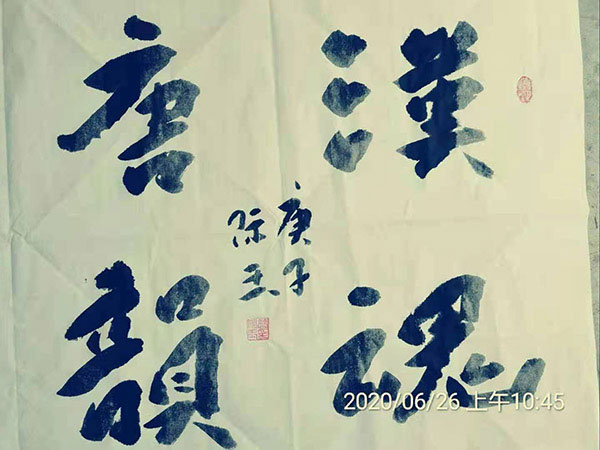 漢魂
唐韻
庚子
2020/06/26 上午10:45